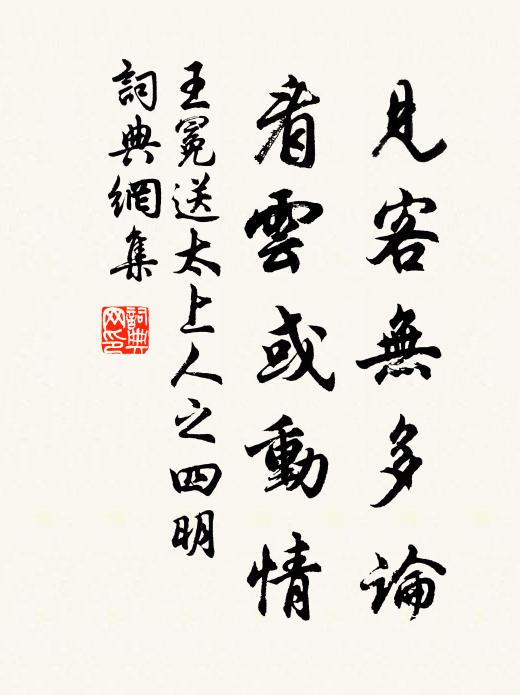 見客無多論
看雲或動情
王冕送太上人之四明
詞典網集
詞典网印